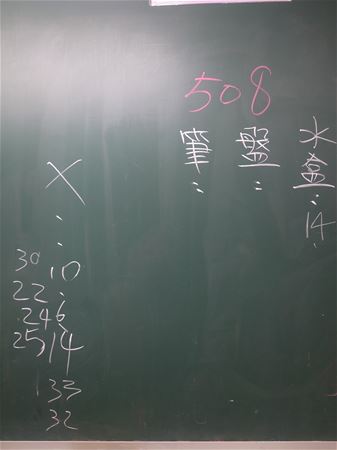 508
水盒:14、
盤:
筆:
X:
30 10、
22、
24 6
25 14
33
32